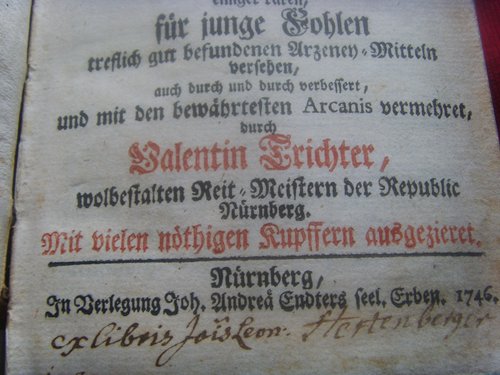 einiger raren,
für junge Fohlen
treflich gut befundenen Arzeney-Mitteln
versehen,
auch durch und durch verbessert,
und mit den bewährtesten Arcanis vermehret,
durch
Valentin Trichter,
wolbestalten Reit-Meistern der Republic
Nürnberg.
Mit vielen nöthigen Kupffern ausgezieret.
Nürnberg,
In Verlegung Joh. Andreä Endters seel. Erben. 1746.
ex libris Jois Leon. Stertenberger